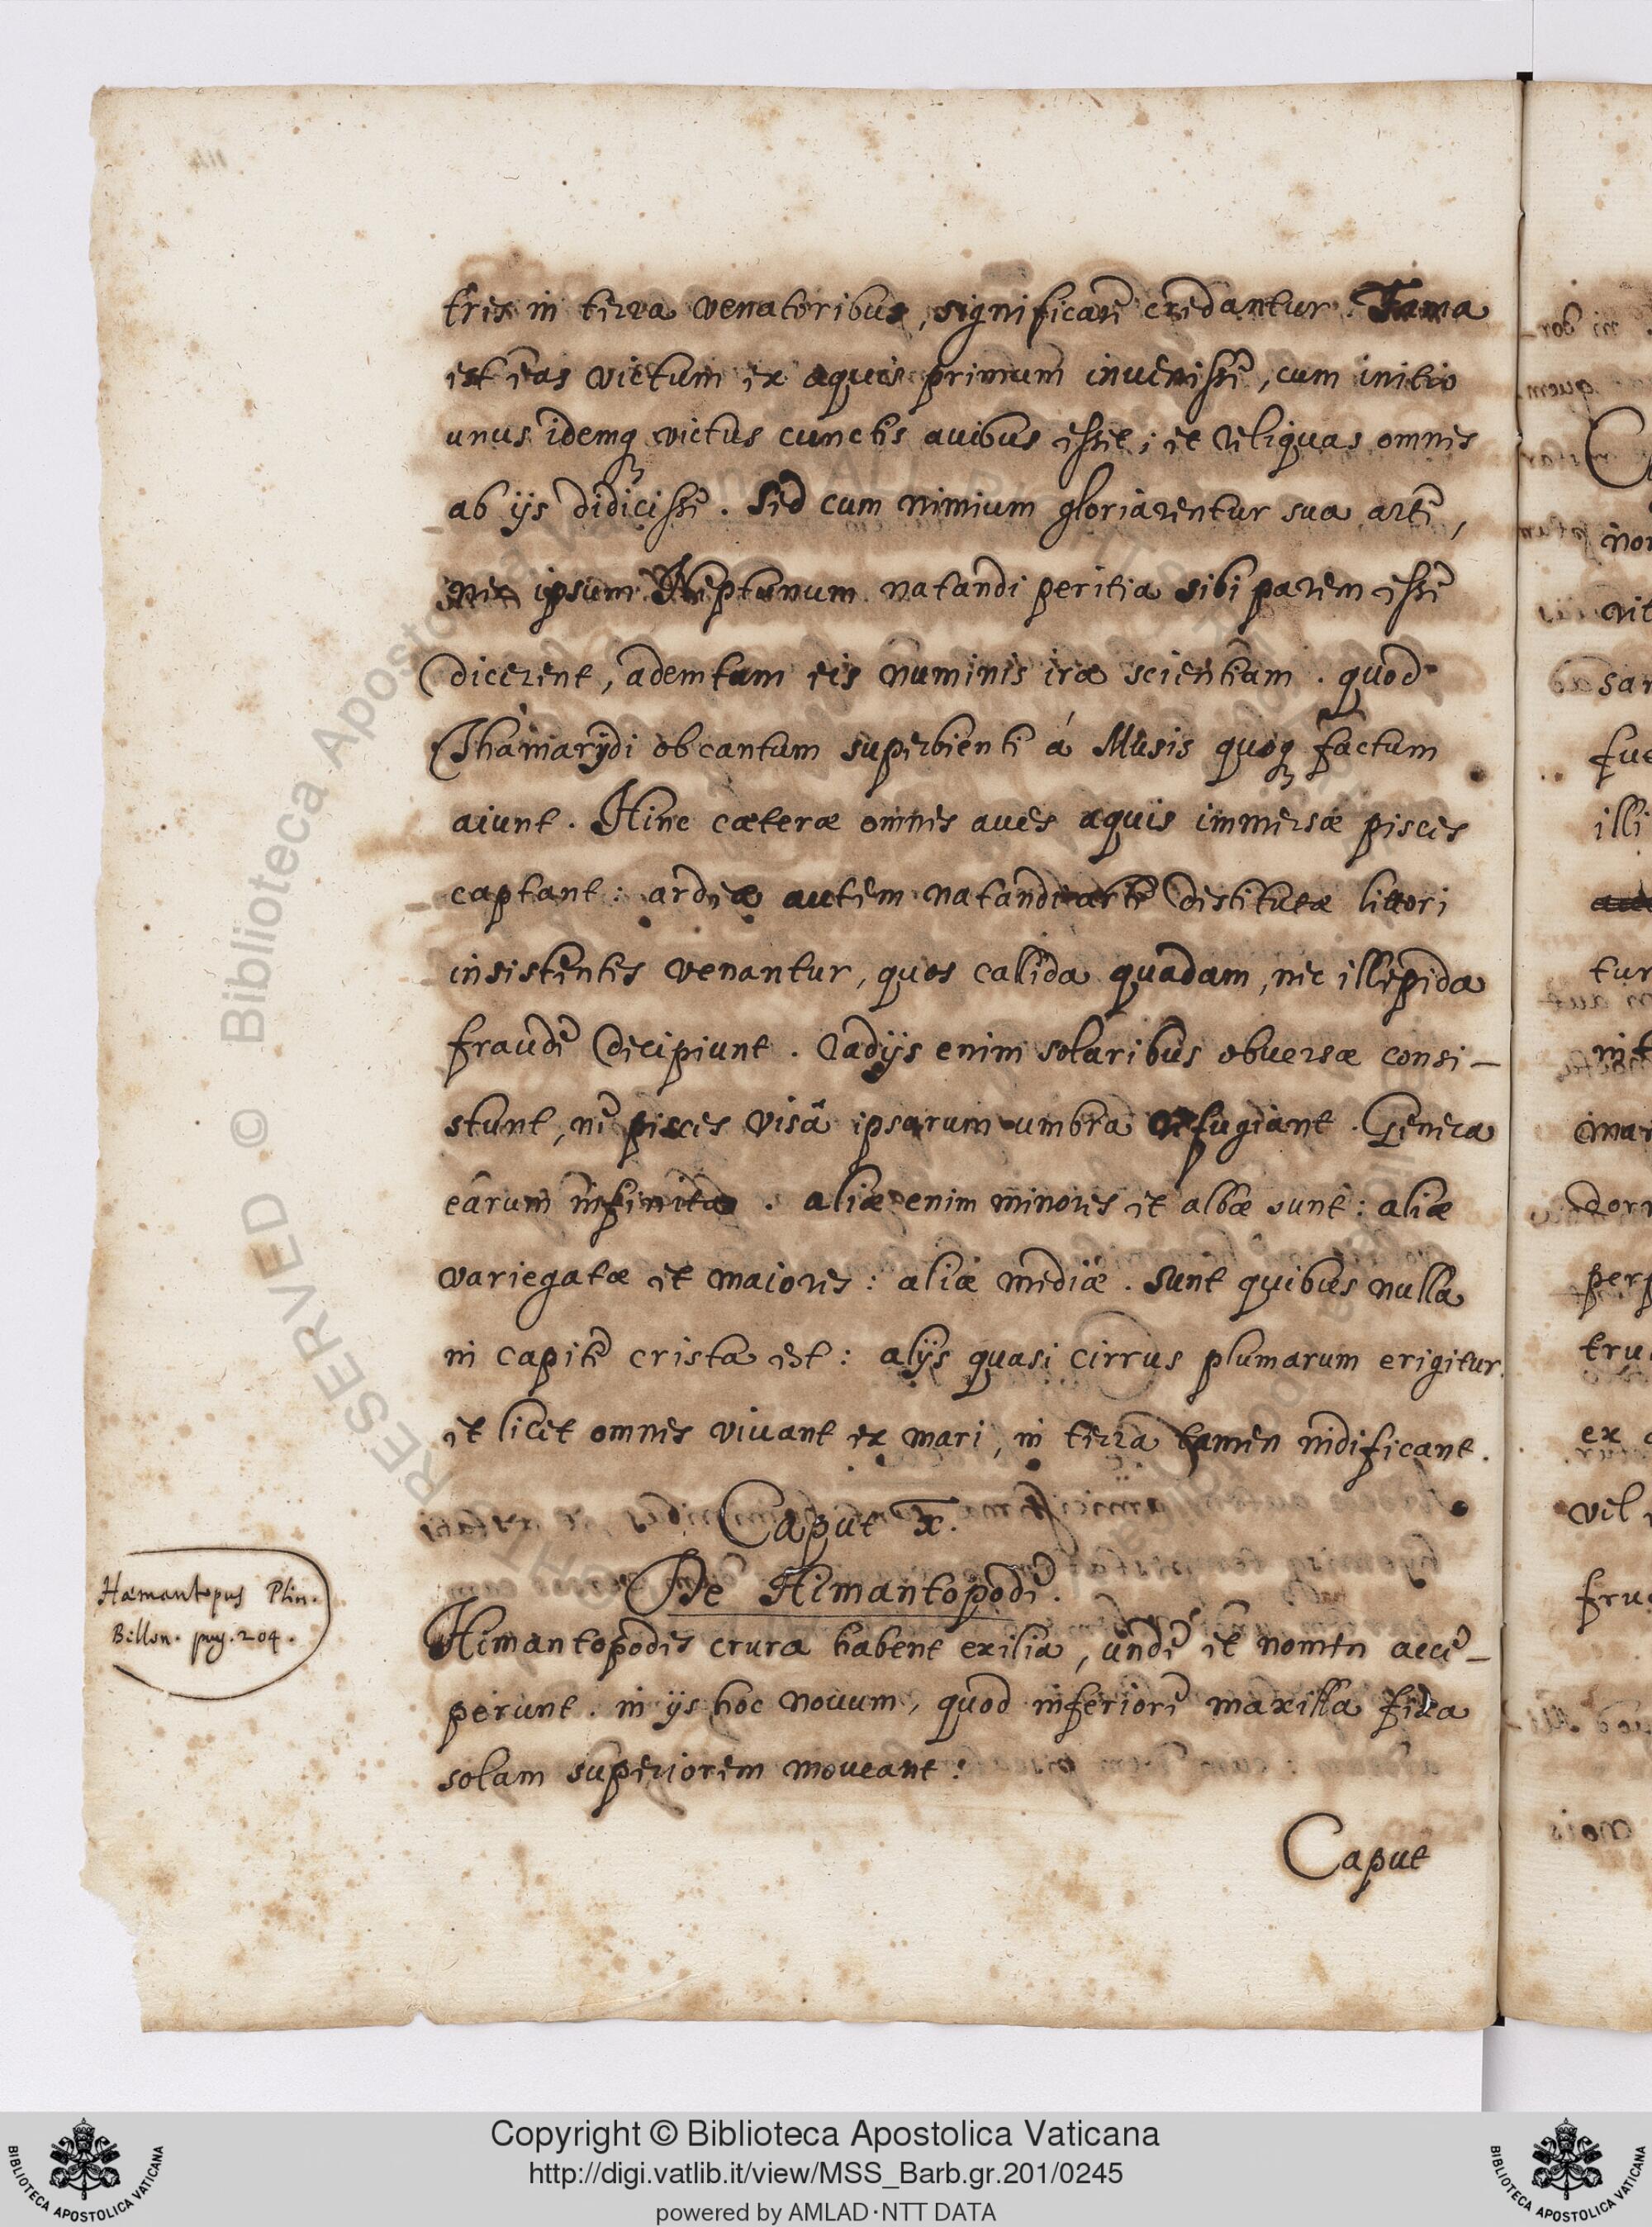 tres in terra venatoribus, significare credantur. Fama
est eas victum ex aquis primum invenisse, cum initio
unus idemq victus cunctis avibus esset; et reliquas omnes
ab ijs didicisse. Sed cum nimium gloriarentur sua arte,
nec ipsum Neptunum natandi peritia sibi parem esse
dicerent, ademtam eis numinis ira scientiam. quod
Thamarydi ob cantum superbienti á Musis quoq factum
aiunt. Hinc cæteræ omnes aves aquis immersæ pisces
captant: ardeæ autem natandi arte destitutæ littori
insistentes venantur, quos calida quadam, nec illepida
fraude decipiunt. Radijs enim solaribus obversæ consi-
stunt, ne pisces visâ ipsarum umbra refugiant. Genera
earum infinita. aliæ enim minores et albæ sunt: aliæ
variegatæ et maiores: aliæ mediæ. Sunt quibus nulla
in capite crista est: alijs quasi cirrus plumarum erigitur.
et licet omnes vivant ex mari, in terra tamen nidificant.
Caput X.
De Himantopode.
Hæmantopus Plin.
Billon. pag. 204.
Himantopodes crura habent exilia, unde et nomen acce-
perunt. in ijs hoc novum, quod inferiore maxilla fixa
solam superiorem moveant.
Caput
Copyright © Biblioteca Apostolica Vaticana
http://digi.vatlib.it/view/MSS_Barb.gr.201/0245
powered by AMLAD·NTT DATA